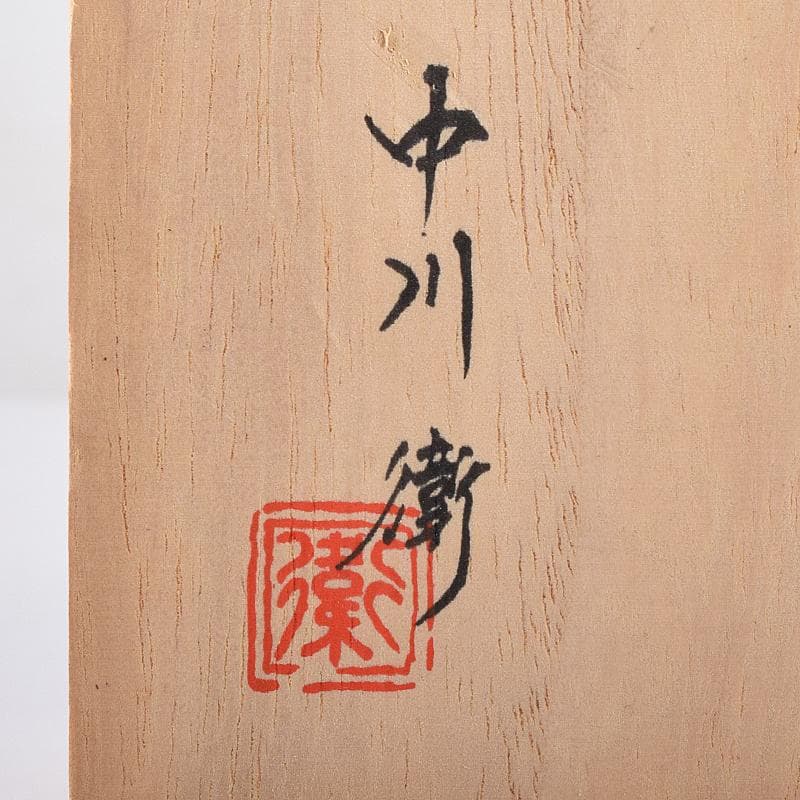 中川衛
衛